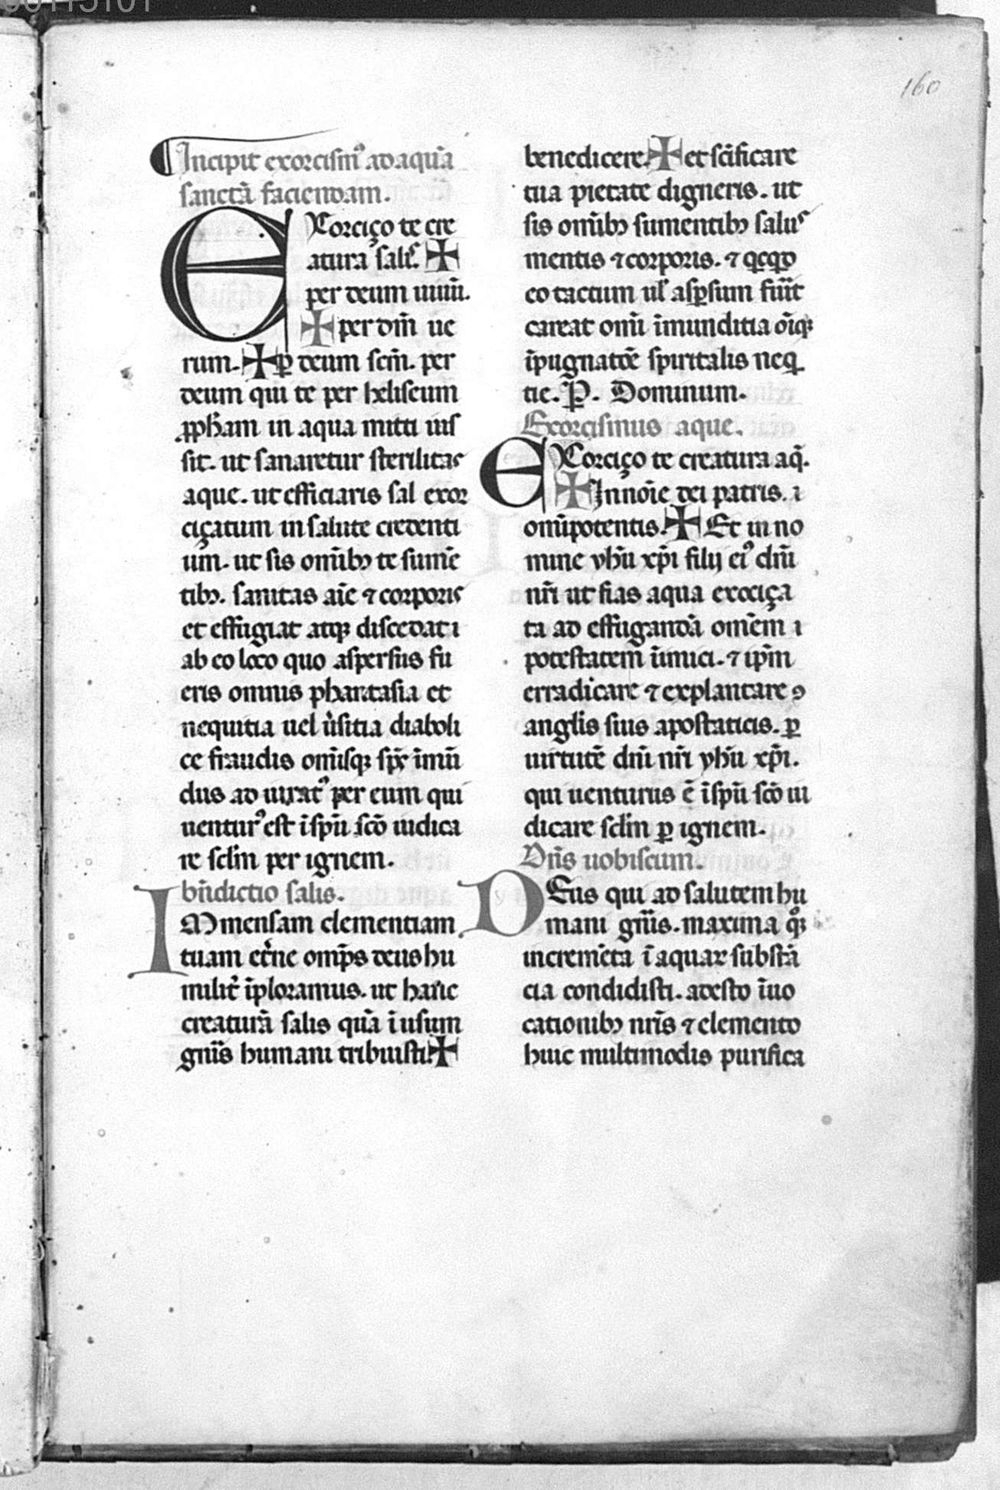 160
Incipit exorcism⁹ ad aquā
sanctā faciendam.
EXorciço te cre
atura salis. ✠
per deum uiuū.
✠ per dm̄ ue
rum. ✠ ꝑ deum scm̄. per
deum qui te per heliseum
ꝓpham in aqua mitti ius
sit. ut sanaretur sterilitas
aque. ut efficiaris sal exor
ciçatum in salute credenti
um. ut sis omībꝫ te sumē
tibꝫ. sanitas aīe ⁊ corporis
et effugiat atqꝫ discedat i
ab eo loco quo aspersus fu
eris omnis phantasia et
nequitia uel u̾sitia diaboli
ce fraudis omīsqꝫ spc̄ īmū
dus adiurat⁹ per eum qui
uentur⁹ est ī spū scō iudica
re sclm̄ per ignem.
bn̄dictio salis.
IMmensam clementiam
tuam et̾ne omps̄ deus hu
milit̾ īploramus. ut hanc
creaturā salis quā ī usum
gnīs humani tribuisti ✠
benedicere. ✠ et scīficare
tua pietate digneris. ut
sis omībꝫ sumentibꝫ salus
mentis ⁊ corporis. ⁊ qcqd
eo tactum ul̾ aspsum fūit
careat omī īmunditia oīqꝫ
īpugnatōe spiritalis neq
tie. P. Dominum.
Exorcismus aque.
EXorciço te creatura aq̄.
✠ In noīe dei patris. i
omīpotentis. ✠ Et in no
mine yhū xp̄i filij ei⁹ dn̄i
nr̄i ut fias aqua exorciça
ta ad effugandā omēm i
potestatem inimici. ⁊ ip̄m
erradicare ⁊ explantare ꝯ
anglis suis apostaticis. ꝑ
uirtutē dn̄i nr̄i yhū xp̄i.
qui uenturus ē ī spū scō iu
dicare sclm̄ ꝑ ignem.
Dn̄s uobiscum.
DEus qui ad salutem hu
mani gnīs. maxima q̄qꝫ
incremēta ī aquaꝝ substā
cia condidisti. adesto īuo
cationibꝫ nr̄is ⁊ elemento
huic multimodis purifica